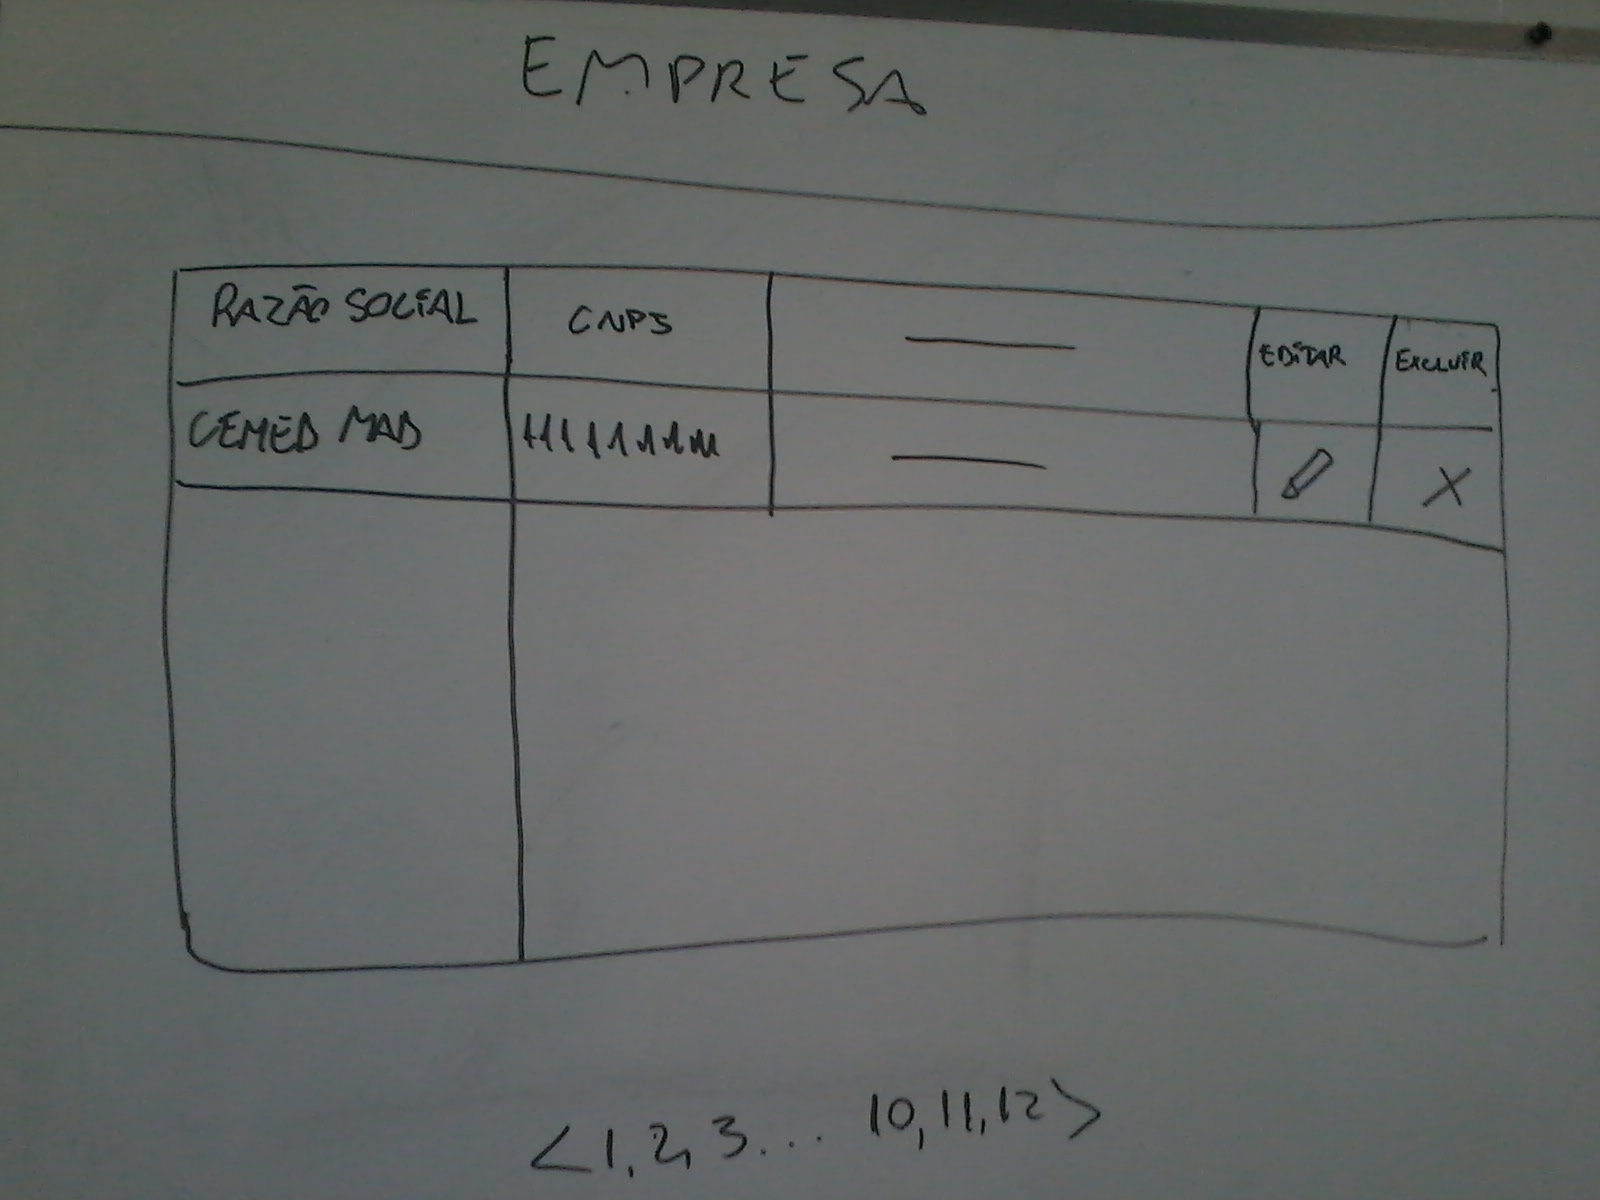 EMPRESA
RAZÃO SOCIAL CNPJ EDITAR EXCLUIR
CEMED MAB X
<1,2,3... 10,11,12>